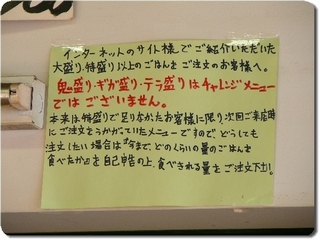 インターネットのサイト様でご紹介いただいた
大盛り・特盛り以上のごはんをご注文のお客様へ。
鬼盛り・ギガ盛り・テラ盛りはチャレンジメニュー
ではございません。
本来は特盛りで足りなかったお客様に限り次回ご来店時
にご注文をうかがっていたメニューですので、どうしても
注文したい場合は『今まで、どのくらいの量のごはんを
食べたか』を自己申告の上、食べきれる量をご注文下さい。